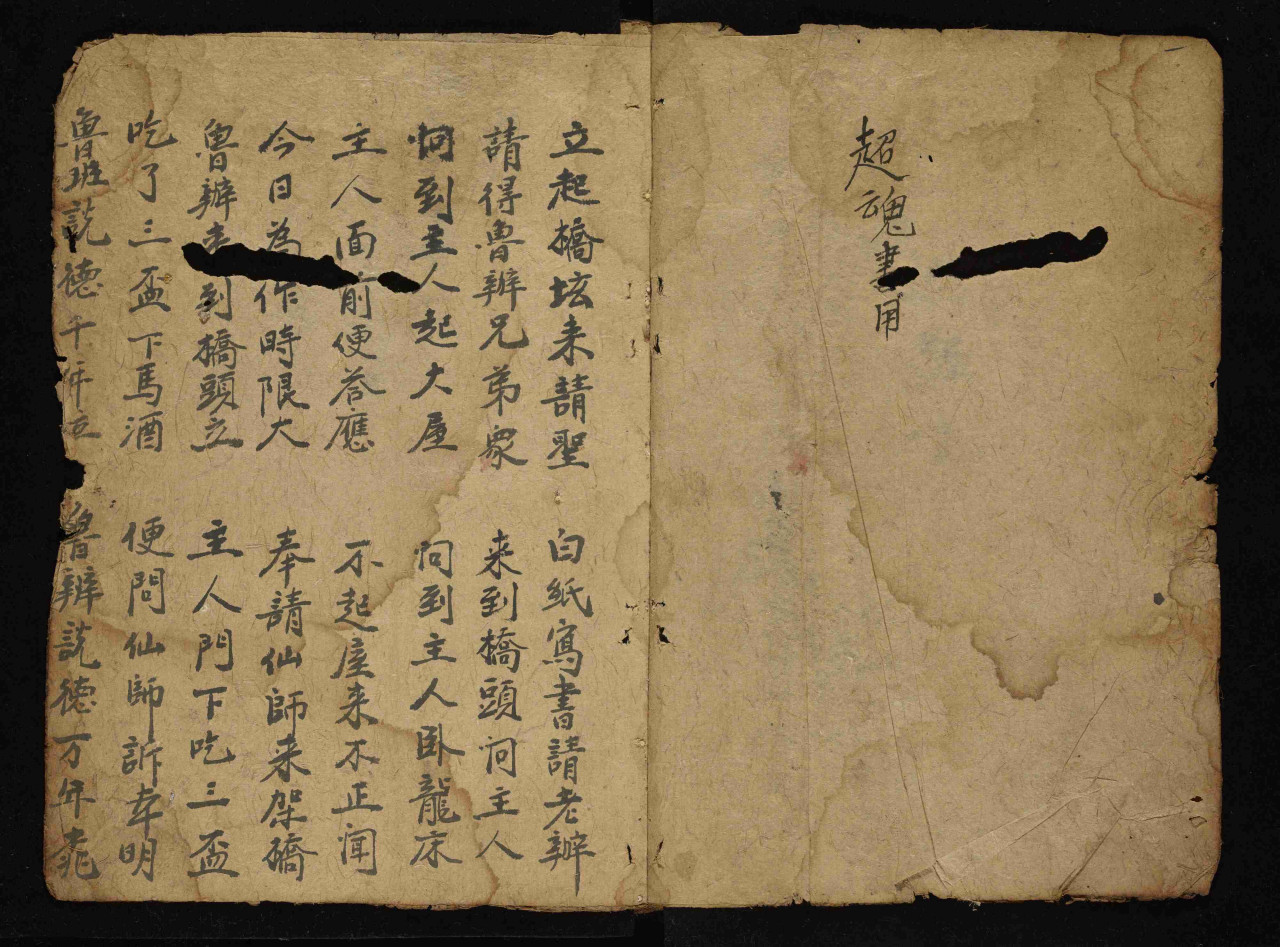 超魂書用
立起橋坛来請聖 白紙寫書請老辦
請得魯辦兄弟眾 来到橋頭问主人
问到主人起大屋 问到主人卧龍床
主人面前便荅應 不起屋来不正闻
今日為作時限大 奉請仙師来架橋
魯辦来到橋頭立 主人門下吃三盃
吃了三盃下馬酒 便問仙師訴幸明
魯班説德千件立 魯辦説德万年